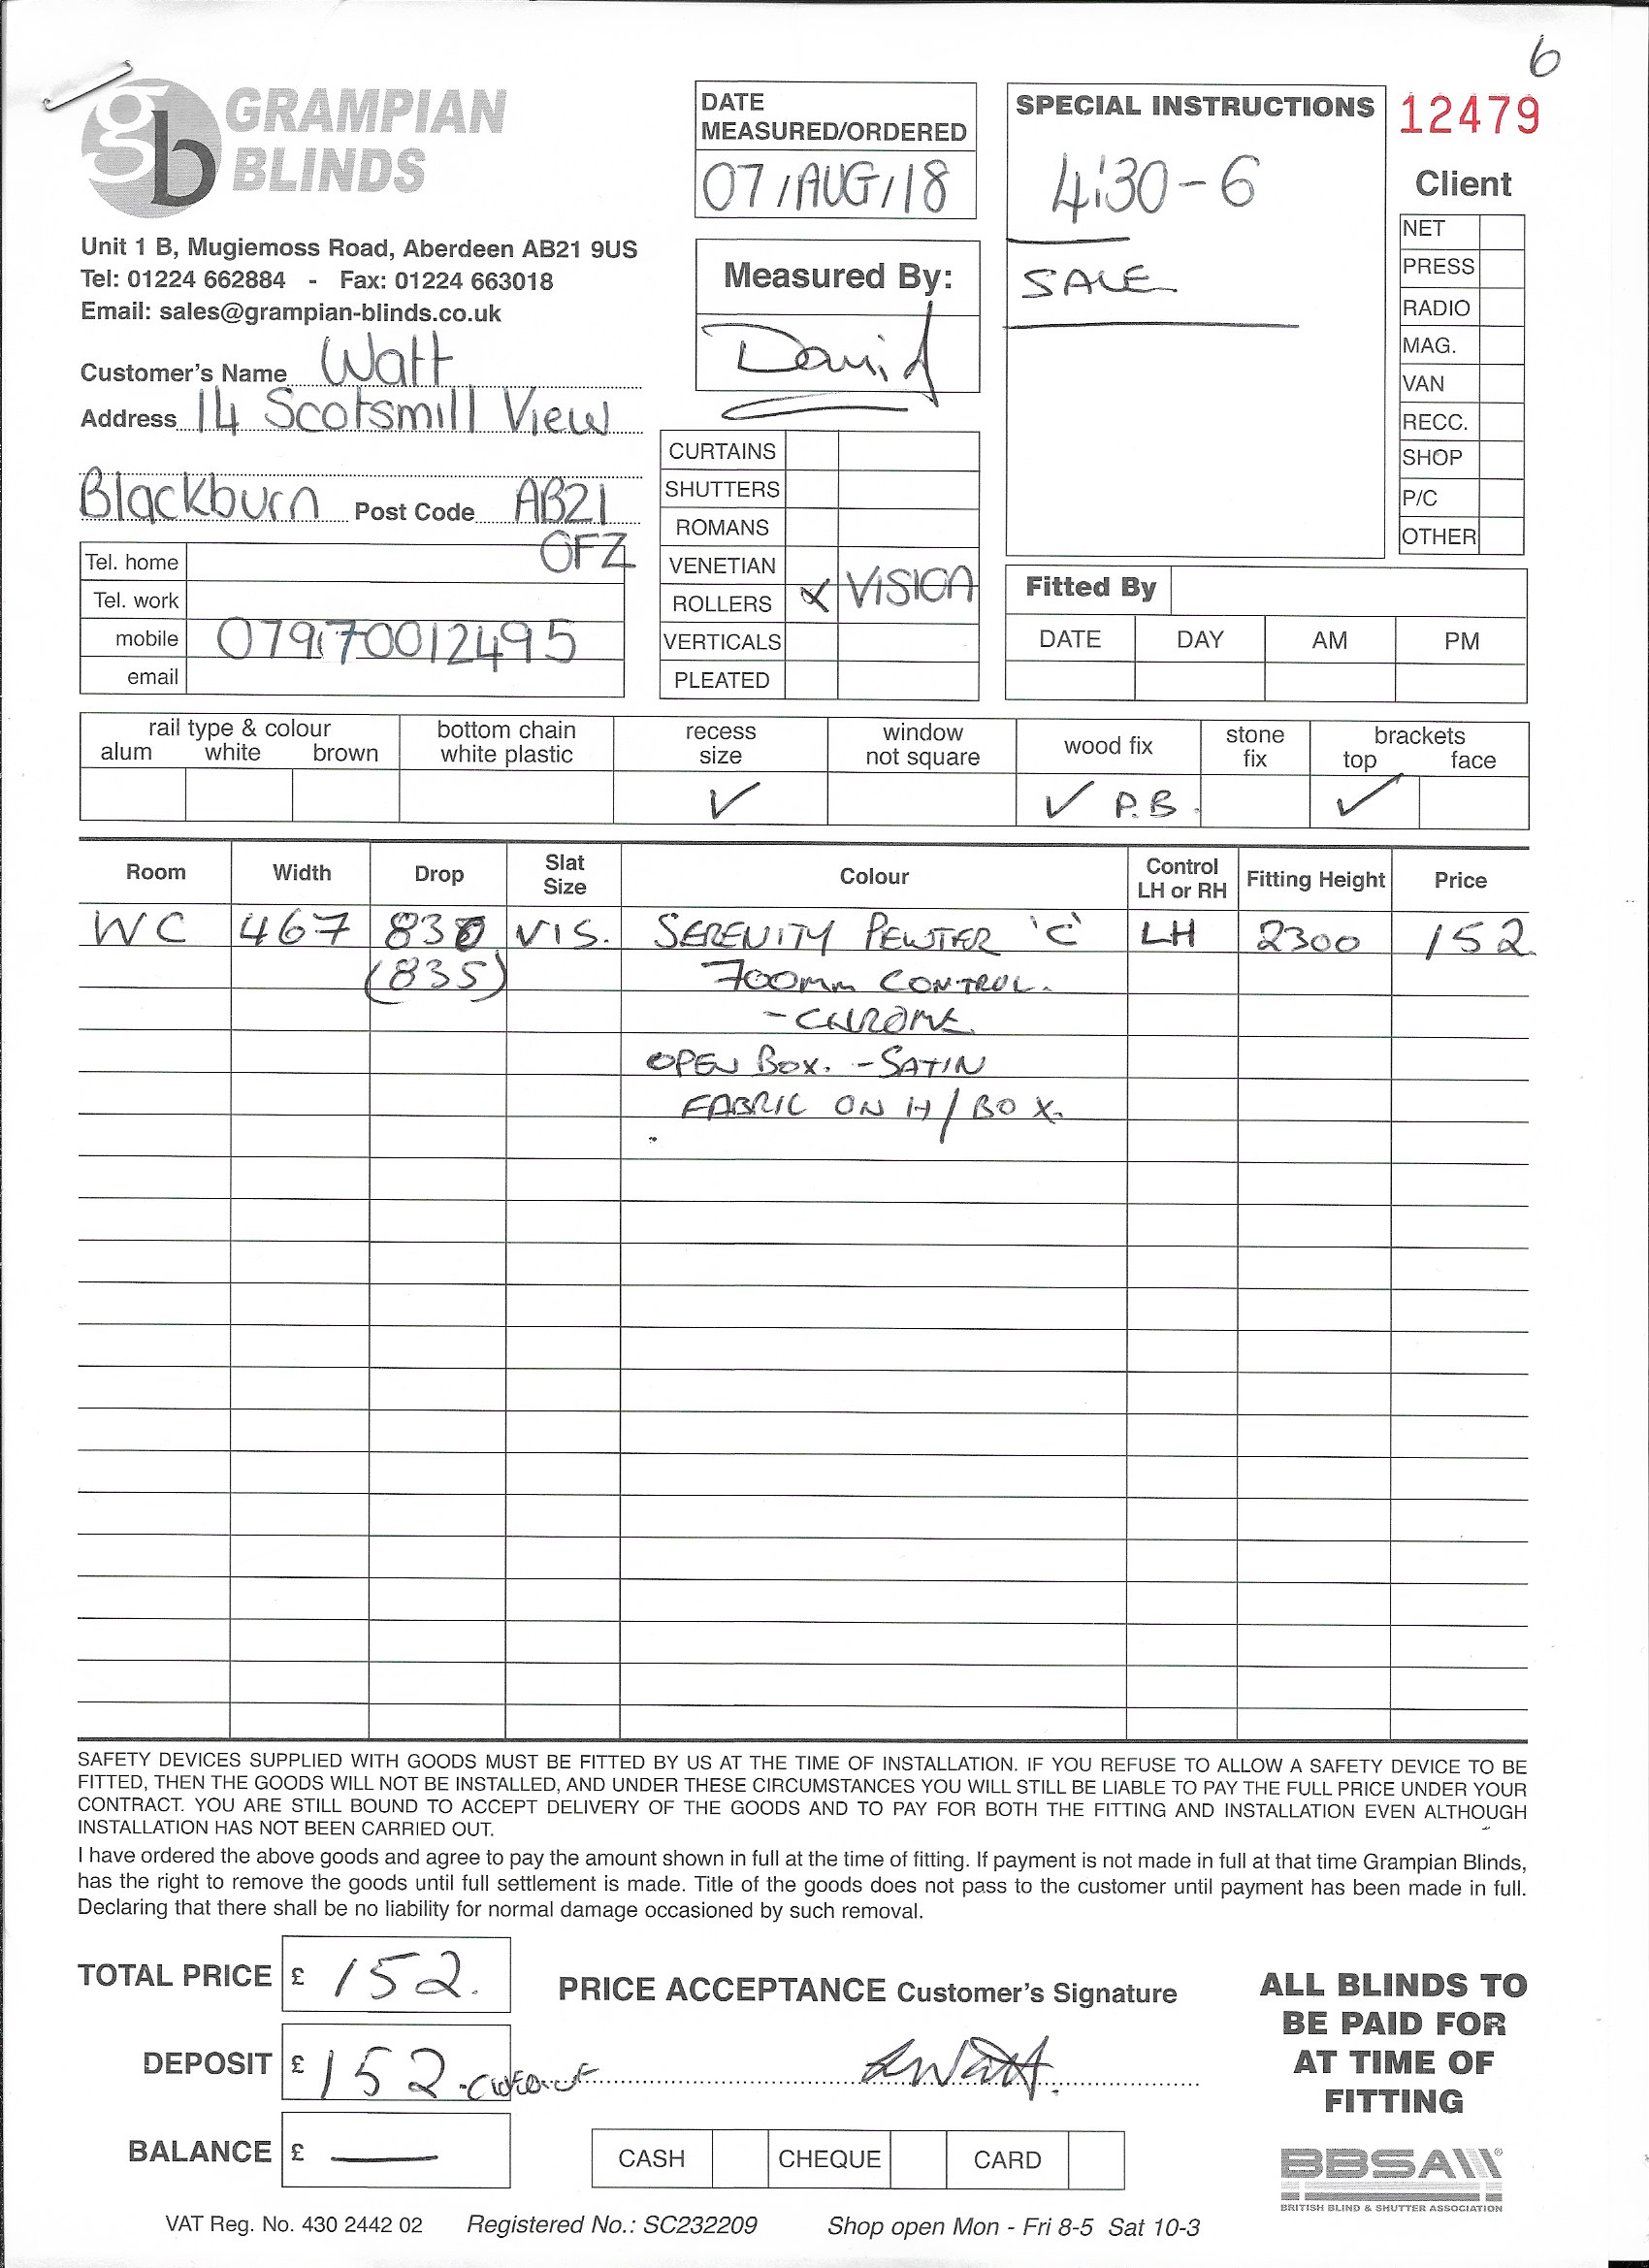 6
gb GRAMPIAN
BLINDS
Unit 1 B, Mugiemoss Road, Aberdeen AB21 9US
Tel: 01224 662884 - Fax: 01224 663018
Email: sales@grampian-blinds.co.uk
Customer's Name Watt
Address 14 Scotsmill View
Blackburn Post Code AB21
0FZ
Tel. home
Tel. work
mobile 07970012495
email
DATE
MEASURED/ORDERED
07/AUG/18
Measured By:
David
CURTAINS
SHUTTERS
ROMANS
VENETIAN
ROLLERS X VISION
VERTICALS
PLEATED
SPECIAL INSTRUCTIONS
4:30-6
SALE
12479
Client
NET
PRESS
RADIO
MAG.
VAN
RECC.
SHOP
P/C
OTHER
Fitted By
DATE DAY AM PM
rail type & colour
alum white brown
bottom chain
white plastic
recess
size
✓
window
not square
wood fix
✓ P.B.
stone
fix
brackets
top face
✓
Room Width Drop Slat Size Colour Control LH or RH Fitting Height Price
WC 467 830 VIS. SERENITY PEWTER 'C' LH 2300 152
(835) 700mm CONTROL.
- CHROME
OPEN BOX. - SATIN
FABRIC ON H/BOX.
SAFETY DEVICES SUPPLIED WITH GOODS MUST BE FITTED BY US AT THE TIME OF INSTALLATION. IF YOU REFUSE TO ALLOW A SAFETY DEVICE TO BE
FITTED, THEN THE GOODS WILL NOT BE INSTALLED, AND UNDER THESE CIRCUMSTANCES YOU WILL STILL BE LIABLE TO PAY THE FULL PRICE UNDER YOUR
CONTRACT. YOU ARE STILL BOUND TO ACCEPT DELIVERY OF THE GOODS AND TO PAY FOR BOTH THE FITTING AND INSTALLATION EVEN ALTHOUGH
INSTALLATION HAS NOT BEEN CARRIED OUT.
I have ordered the above goods and agree to pay the amount shown in full at the time of fitting. If payment is not made in full at that time Grampian Blinds,
has the right to remove the goods until full settlement is made. Title of the goods does not pass to the customer until payment has been made in full.
Declaring that there shall be no liability for normal damage occasioned by such removal.
TOTAL PRICE £ 152.
DEPOSIT £ 152
BALANCE £ —
PRICE ACCEPTANCE Customer's Signature
LWatt.
CASH CHEQUE CARD
ALL BLINDS TO
BE PAID FOR
AT TIME OF
FITTING
BBSA
BRITISH BLIND & SHUTTER ASSOCIATION
VAT Reg. No. 430 2442 02 Registered No.: SC232209 Shop open Mon - Fri 8-5 Sat 10-3